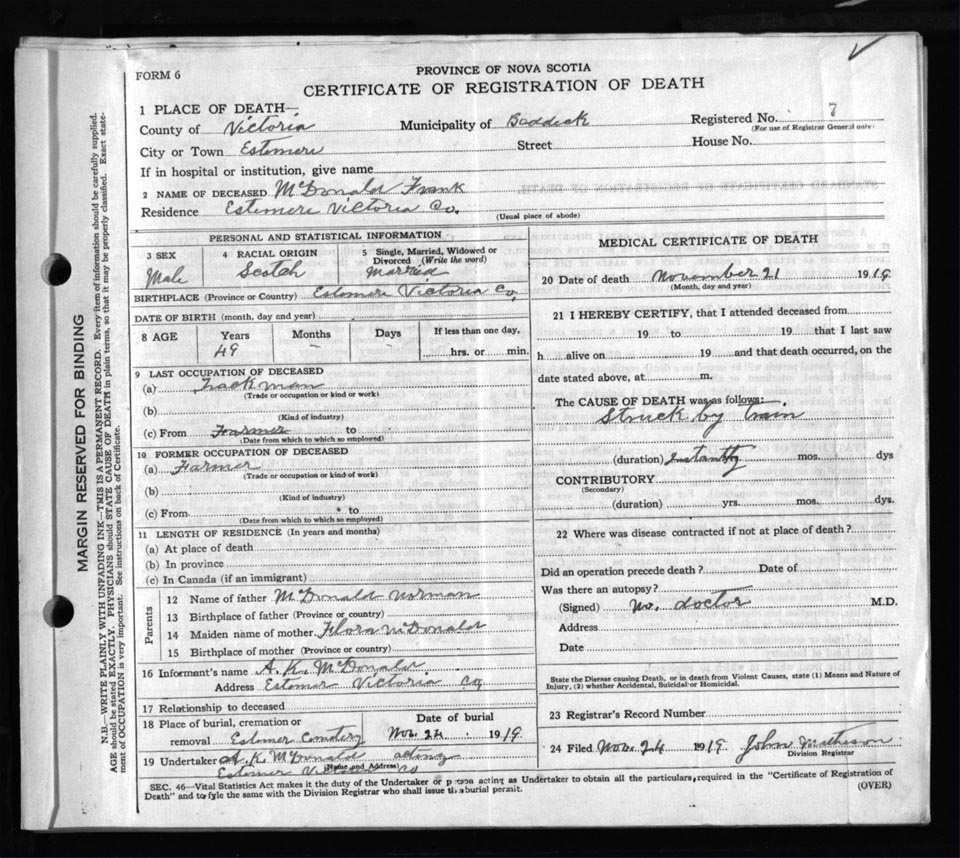 FORM 6
PROVINCE OF NOVA SCOTIA
CERTIFICATE OF REGISTRATION OF DEATH
1 PLACE OF DEATH—
County of Victoria Municipality of Baddeck Registered No. 7
(For use of Registrar General only)
City or Town Estmere Street House No.
If in hospital or institution, give name
2 NAME OF DECEASED McDonald Frank
Residence Estmere Victoria Co.
(Usual place of abode)
PERSONAL AND STATISTICAL INFORMATION
3 SEX 4 RACIAL ORIGIN 5 Single, Married, Widowed or Divorced (Write the word)
Male Scotch Married
BIRTHPLACE (Province or Country) Estmere Victoria Co.
DATE OF BIRTH (month, day and year)
8 AGE Years Months Days If less than one day,
49 – – hrs. or min.
9 LAST OCCUPATION OF DECEASED
(a) Trackman
(Trade or occupation or kind or work)
(b)
(Kind of industry)
(c) From Farmer to
(Date from which to which so employed)
10 FORMER OCCUPATION OF DECEASED
(a) Farmer
(Trade or occupation or kind of work)
(b)
(Kind of industry)
(c) From to
(Date from which to which so employed)
11 LENGTH OF RESIDENCE (In years and months)
(a) At place of death
(b) In province
(c) In Canada (if an immigrant)
Parents
12 Name of father McDonald Norman
13 Birthplace of father (Province or country)
14 Maiden name of mother Flora McDonald
15 Birthplace of mother (Province or country)
16 Informant's name A. K. McDonald
Address Estmer Victoria Co
17 Relationship to deceased
18 Place of burial, cremation or removal Estmer Cemetery
Date of burial
Nov. 24 1919
19 Undertaker A. K. McDonald acting
(Name and Address)
Estmer Victoria Co
MEDICAL CERTIFICATE OF DEATH
20 Date of death November 21 1919
(Month, day and year)
21 I HEREBY CERTIFY, that I attended deceased from
19 to 19 that I last saw
h alive on 19 and that death occurred, on the
date stated above, at m.
The CAUSE OF DEATH was as follows:—
Struck by train
(duration) Instantly mos. dys
CONTRIBUTORY
(Secondary)
(duration) yrs. mos. dys.
22 Where was disease contracted if not at place of death?
Did an operation precede death? Date of
Was there an autopsy?
(Signed) No. doctor M.D.
Address
Date
State the Disease causing Death, or in death from Violent Causes, state (1) Means and Nature of
Injury, (2) whether Accidental, Suicidal or Homicidal.
23 Registrar's Record Number
24 Filed Nov. 24 1919 John Matheson
Division Registrar
SEC. 46—Vital Statistics Act makes it the duty of the Undertaker or person acting as Undertaker to obtain all the particulars required in the "Certificate of Registration of
Death" and to file the same with the Division Registrar who shall issue the burial permit.
(OVER)
MARGIN RESERVED FOR BINDING
N.B.—WRITE PLAINLY WITH UNFADING INK—THIS IS A PERMANENT RECORD. Every item of information should be carefully supplied.
AGE should be stated EXACTLY. PHYSICIANS should STATE CAUSE OF DEATH in plain terms, so that it may be properly classified. Exact state-
ment of OCCUPATION is very important. See instructions on back of Certificate.